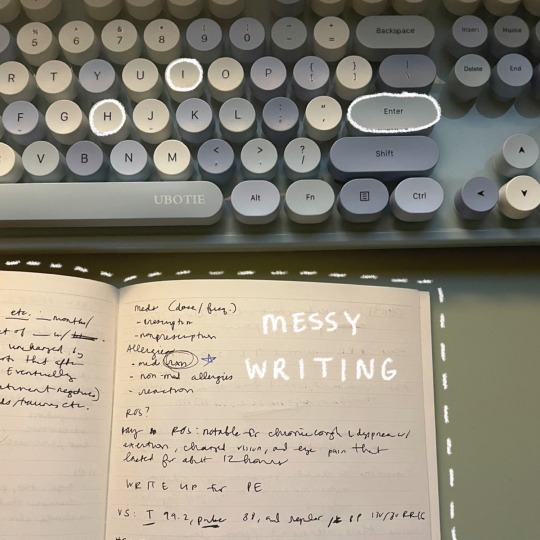 % 5
^ 6
& 7
* 8
( 9
) 0
_ -
+ =
Backspace
Insert Home
R T Y U I O P { [ } ] | \
Delete End
F G H J K L : ; " ' Enter
V B N M < , > . ? / Shift
UBOTIE Alt Fn Ctrl
MESSY
WRITING
etc. __ months/
of __ w/
uncharged by
that
Eventually
etc.
meds (dose/freq.)
- prescription
- nonprescription
Allergies
- med rxn
- non-med allergies
- reaction
ROS?
ROS: notable for chronic cough & dyspnea w/
exertion, changed vision, and eye pain that
lasted for about 12 hours
WRITE UP for PE
VS: T 99.2, pulse 88, and regular, BP